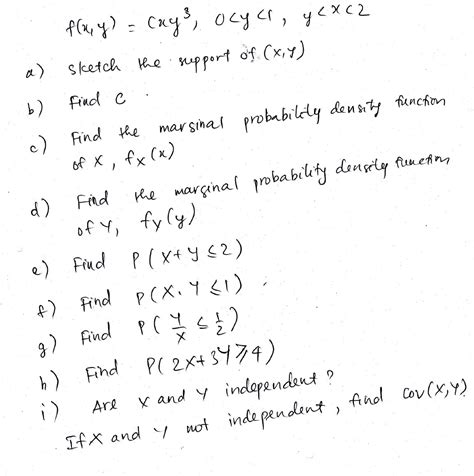 f(x,y) = Cxy³, 0<y<1, y<x<2
a) sketch the support of (x,y)
b) Find C.
c) Find the marginal probability density function
of X, fx(x)
d) Find the marginal probability density function
of Y, fy(y)
e) Find P(X+Y≤2)
f) Find P(X.Y≤1).
g) Find P(Y/X ≤ 1/2)
h) Find P(2X+3Y≥4)
i) Are X and Y independent?
If X and Y not independent, find cov(X,Y)